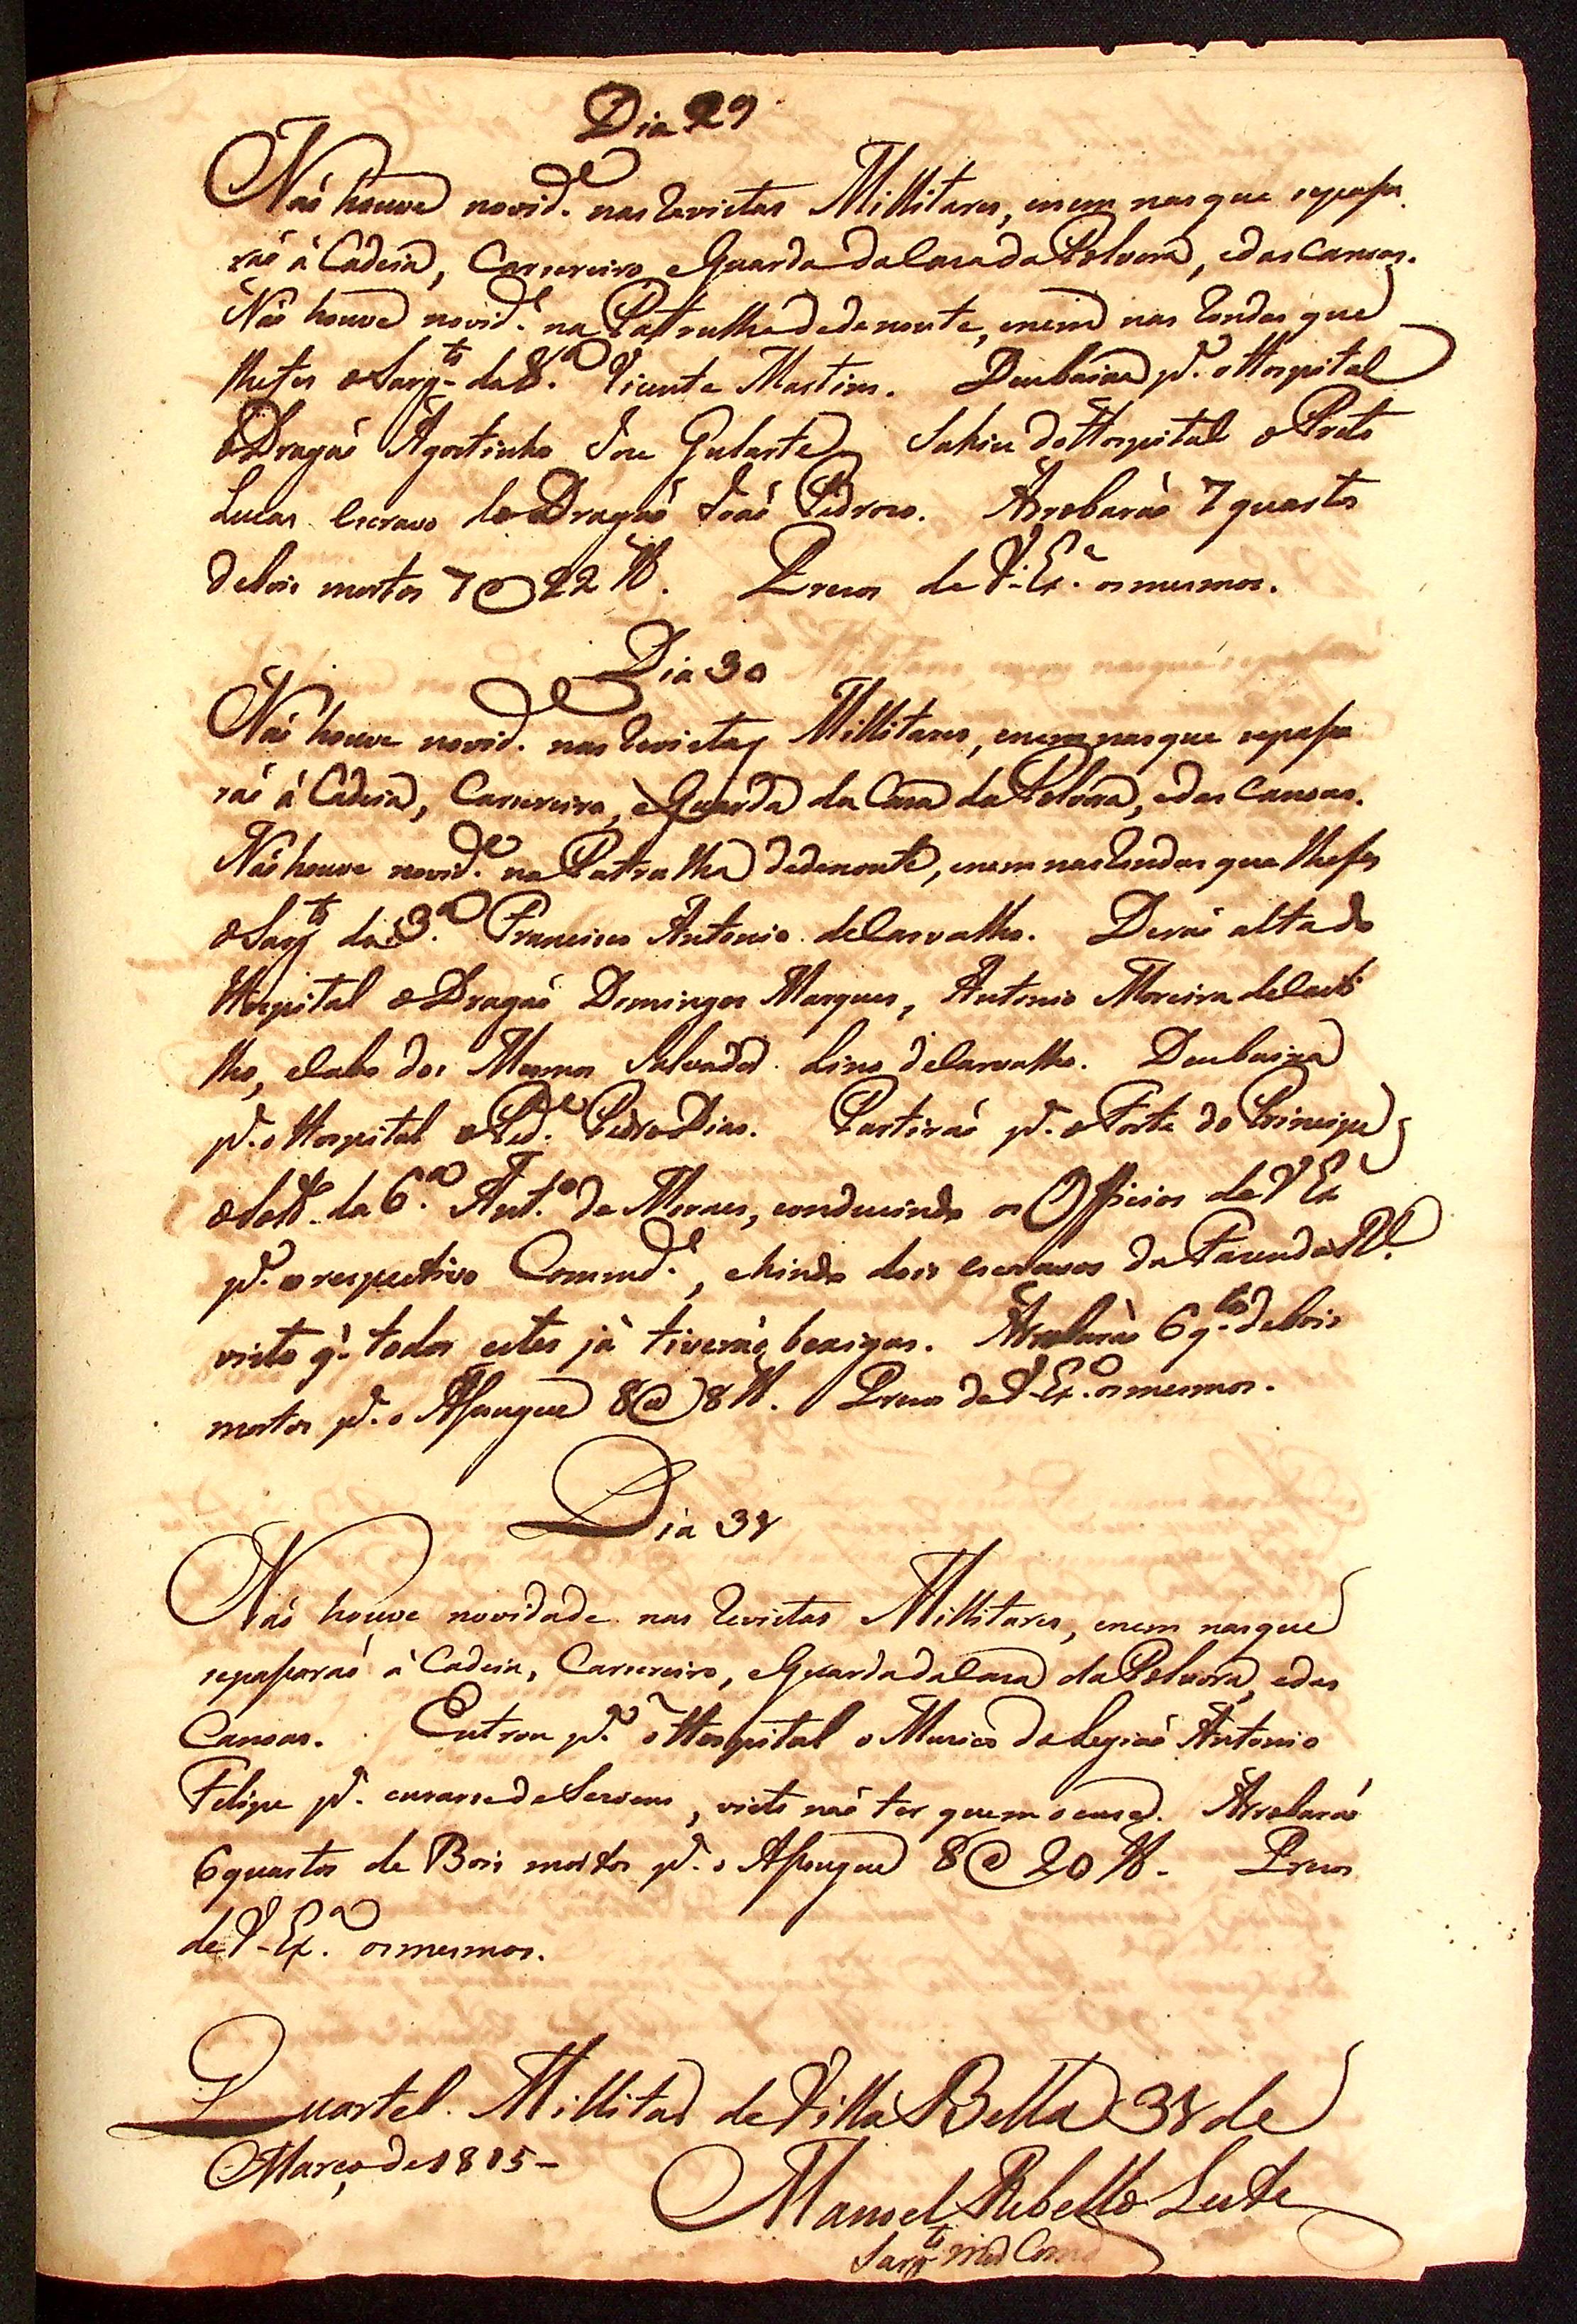 Dia 29
Não houve novid.e nas Revistas Millitares, enem nas que sepaſsa
rão à Cadeia, Carsereiro eGuarda daCasa daPolvora, edas Canoas.
Não houve novid.e na Patrulha dedenoute, enem nas Rondas que
lhefes oSarg.to da 8.a Vicente Martins. Deubaixa p.a oHospital
oDragão Agostinho Joze Gularte Sahiu doHospital oPreto
Lucas escravo doDragão João Pedrozo. Arrobarão 7 quartos
deBois mortos 7@22 ℔. Prezos de V.Ex.a osmesmos.
Dia 30
Não houve novid.e nas Revistas Millitares, enem nasque sepaſsa
rão á Cadeia, Carsereiro, eGuarda da Casa daPolvora, edas Canoas.
Não houve novid.e na Patrulha dedenoute, enem nasRondas que lhefes
oSarg.to da 3.a Francisco Antonio deCarvalho. Derão alta do
Hospital oDragão Domingos Marques, Antonio Moreira deCasti
lho, eCabo dos Mesmos Salvador Lino deCarvalho. Deubaixa
p.a oHospital oPed.e PedroDias. Partirão p.a oForte do Principe
oSold.o da 6.a Ant.o de Moraes, conduzindo os Officios de V Ex
p.a orespectivo Commd.e, ehindo dois escravos da FazendaR.l
visto q. todos estes já tiverão bexigas. Arrobarão 6 q.tos deBois
mortos p.a o Aſsougue 8@8℔. Prezos de V.Ex.a osmesmos.
Dia 31
Não houve novidade nas Revistas Millitares, enem nasque
sepaſsarão à Cadeia, Carsereiro, eGuardadaCasa daPolvora, edas
Canoas. Entrou p.a oHospital o Muzico daLegião Antonio
Felipe p.a curarsede , visto não ter quem ocure. Arrobarão
6 quartos de Bois mortos p.a o Aſsougue 8@20℔. Prezos
de V.Ex.a osmesmos.
Quartel Millitar de Villa Bella 31 de
Março de 1815-
Manoel Rebello Leite
Sarg.to